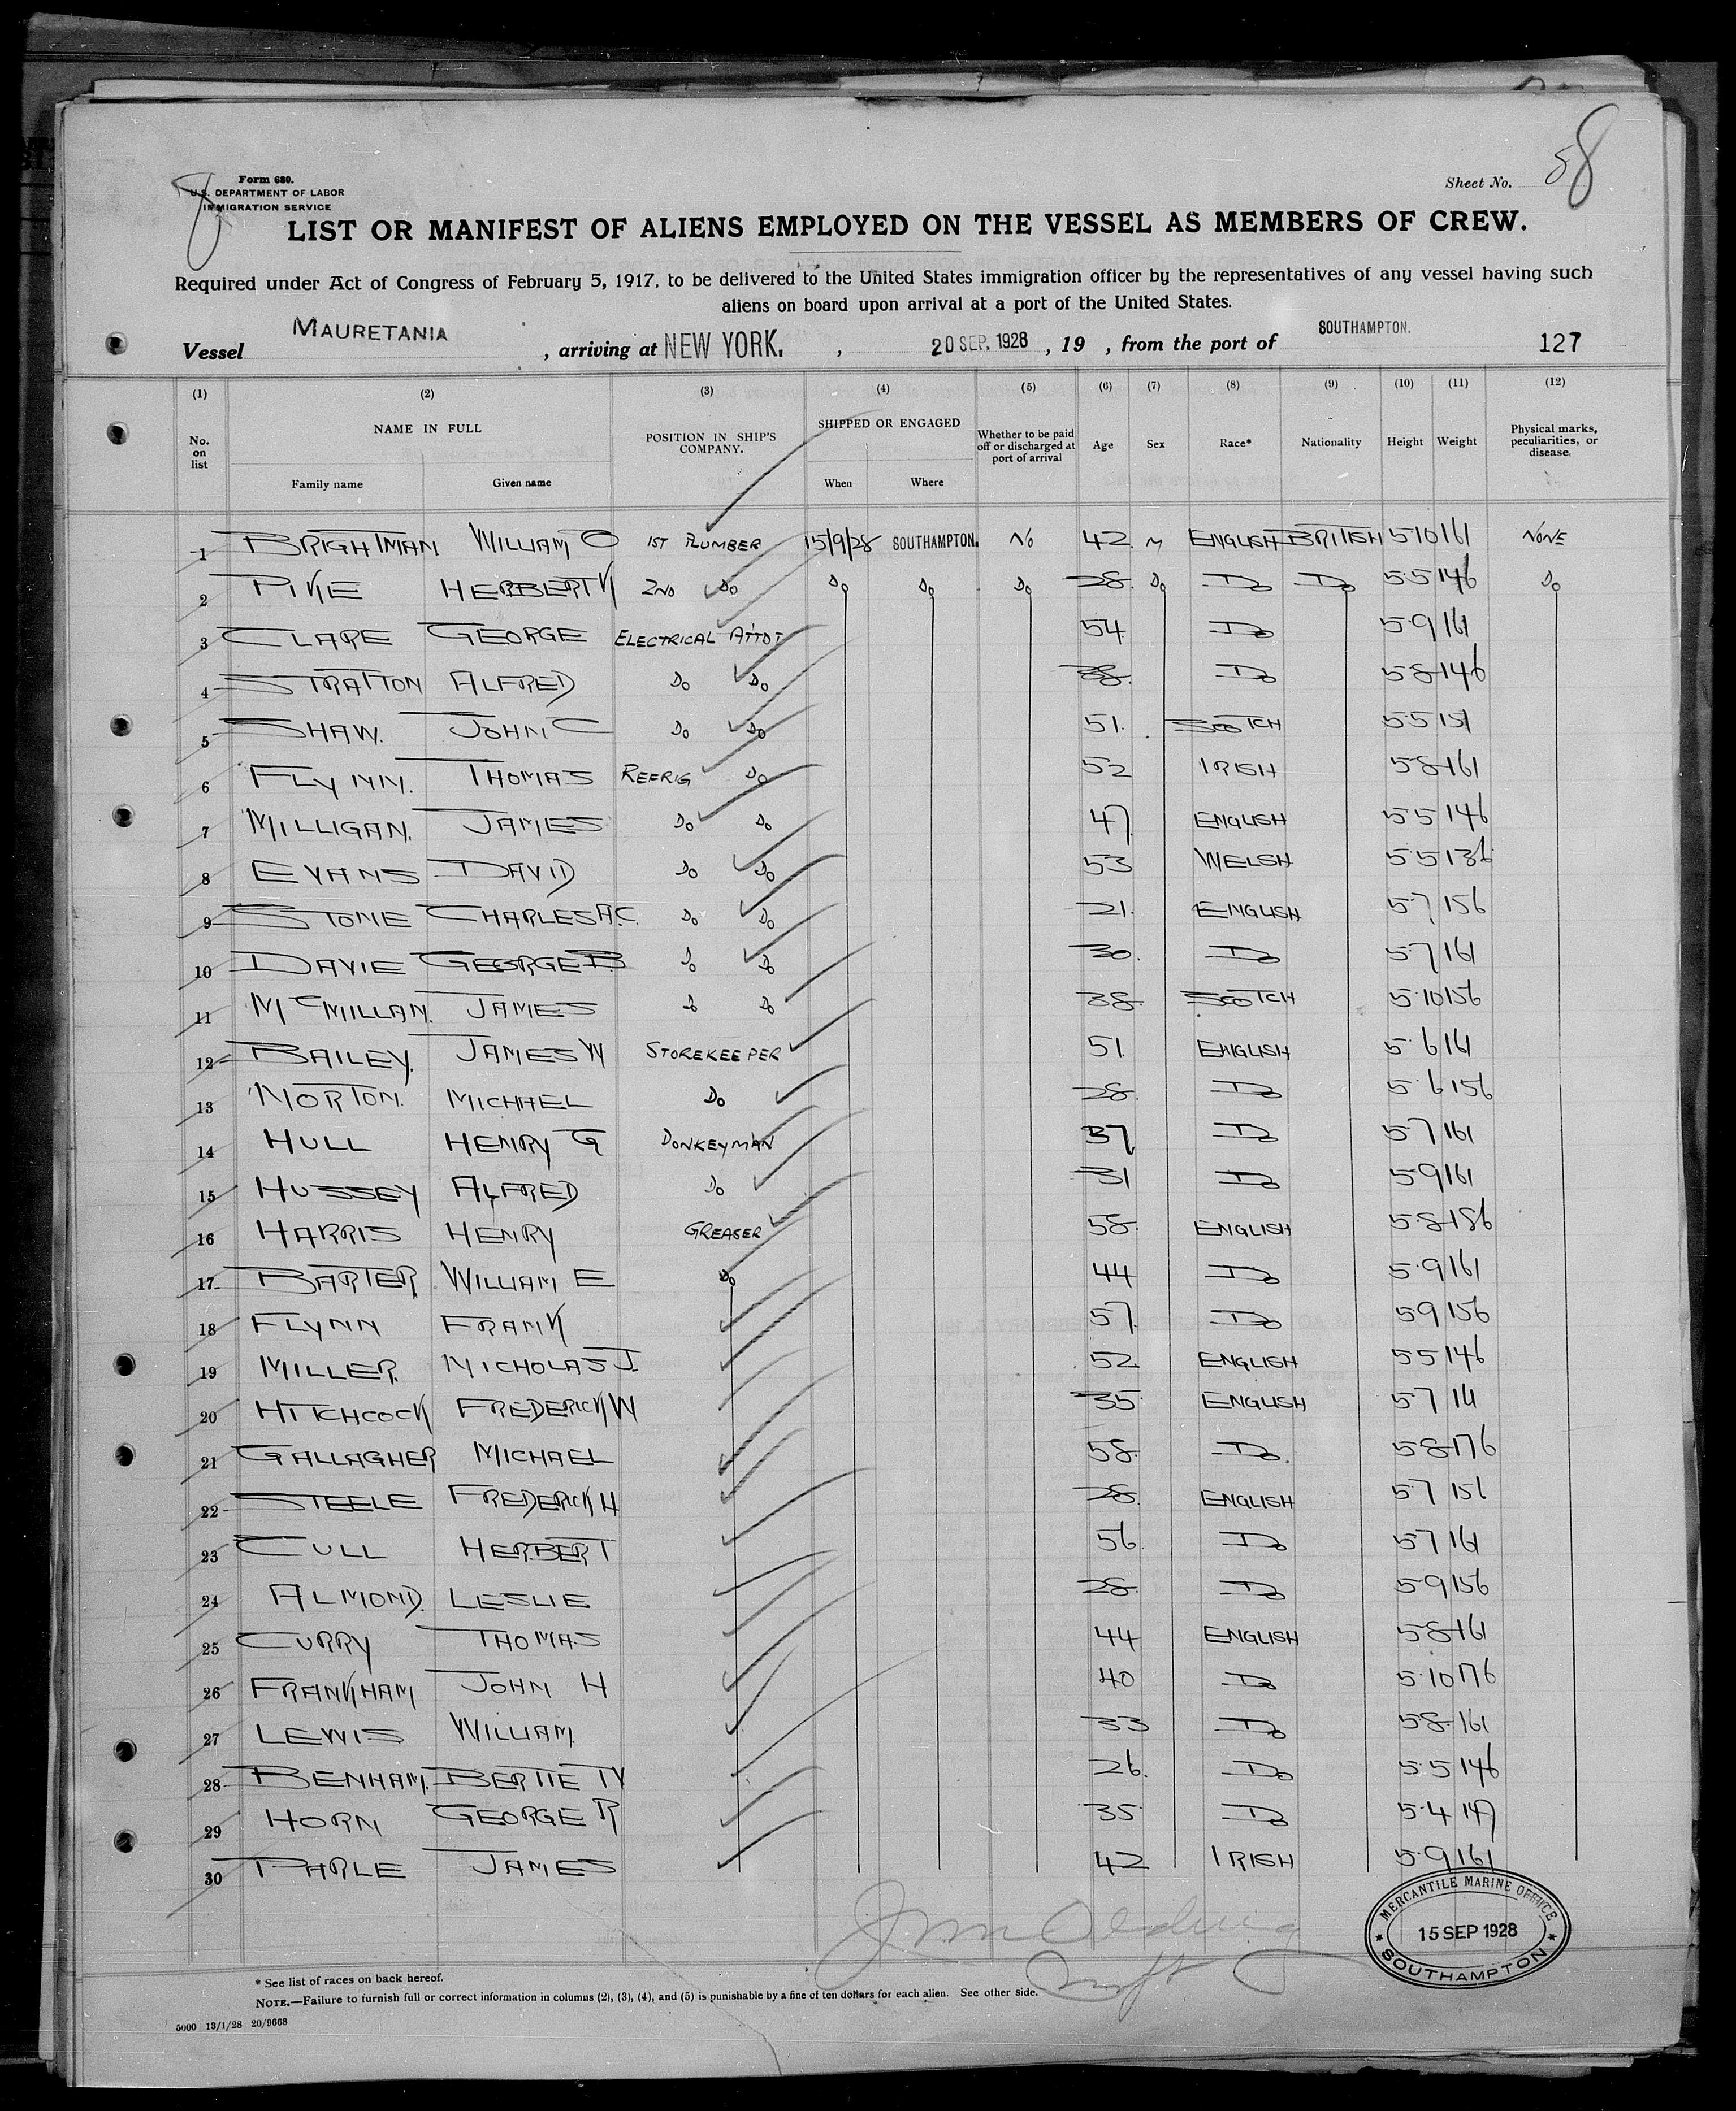 Form 680.
U.S. DEPARTMENT OF LABOR
IMMIGRATION SERVICE
8
Sheet No. 58
LIST OR MANIFEST OF ALIENS EMPLOYED ON THE VESSEL AS MEMBERS OF CREW.
Required under Act of Congress of February 5, 1917, to be delivered to the United States immigration officer by the representatives of any vessel having such
aliens on board upon arrival at a port of the United States.
Vessel MAURETANIA , arriving at NEW YORK. , 20 SEP. 1928 , 19 , from the port of SOUTHAMPTON. 127
(1) (2) (3) (4) (5) (6) (7) (8) (9) (10) (11) (12)
No. on list NAME IN FULL Family name Given name POSITION IN SHIP'S COMPANY. SHIPPED OR ENGAGED When Where Whether to be paid off or discharged at port of arrival Age Sex Race* Nationality Height Weight Physical marks, peculiarities, or disease.
1 BRIGHTMAN WILLIAM O 1ST PLUMBER 15/9/28 SOUTHAMPTON. NO 42. M ENGLISH BRITISH 5·10 161 NONE
2 PIKE HERBERT K 2ND DO DO DO DO 28. DO DO DO 5·5 146 DO
3 CLARE GEORGE ELECTRICAL ATTDT 54 DO 5·9 161
4 STRATTON ALFRED DO DO 38. DO 5·8 146
5 SHAW. JOHN C DO DO 51. SCOTCH 5·5 151
6 FLYNN. THOMAS REFRIG DO 52 IRISH 5·8 161
7 MILLIGAN. JAMES DO DO 47 ENGLISH 5·5 146
8 EVANS DAVID DO DO 53 WELSH 5·5 136
9 STONE CHARLES A.C. DO DO 21. ENGLISH 5·7 156
10 DAVIE GEORGE B. DO DO 30. DO 5·7 161
11 MCMILLAN. JAMES DO DO 38 SCOTCH 5·10 156
12 BAILEY. JAMES W STOREKEEPER 51 ENGLISH 5·6 161
13 NORTON. MICHAEL DO 28 DO 5·6 156
14 HULL HENRY G DONKEYMAN 37 DO 5·7 161
15 HUSSEY ALFRED DO 31 DO 5·9 161
16 HARRIS HENRY GREASER 58. ENGLISH 5·8 186
17 BARTER. WILLIAM E DO 44 DO 5·9 161
18 FLYNN FRANK 57. DO 5·9 156
19 MILLER. NICHOLAS J. 52 ENGLISH 5·5 146
20 HITCHCOCK FREDERICK W 35 ENGLISH 5·7 141
21 GALLAGHER MICHAEL 58 DO. 5·8 176
22 STEELE FREDERICK H 28. ENGLISH 5·7 151
23 CULL HERBERT 56. DO 5·7 161
24 ALMOND. LESLIE 28. DO 5·9 156
25 CURRY THOMAS 44 ENGLISH 5·8 161
26 FRANKHAM JOHN H 40 DO 5·10 176
27 LEWIS WILLIAM. 33 DO 5·8 161
28 BENHAM. BERTIE W 26. DO 5·5 146
29 HORN GEORGE R 35 DO 5·4 147
30 PARLE JAMES 42 IRISH 5·9 161
MERCANTILE MARINE OFFICE
15 SEP 1928
SOUTHAMPTON
* See list of races on back hereof.
NOTE.—Failure to furnish full or correct information in columns (2), (3), (4), and (5) is punishable by a fine of ten dollars for each alien. See other side.
5000 13/1/28 20/9668